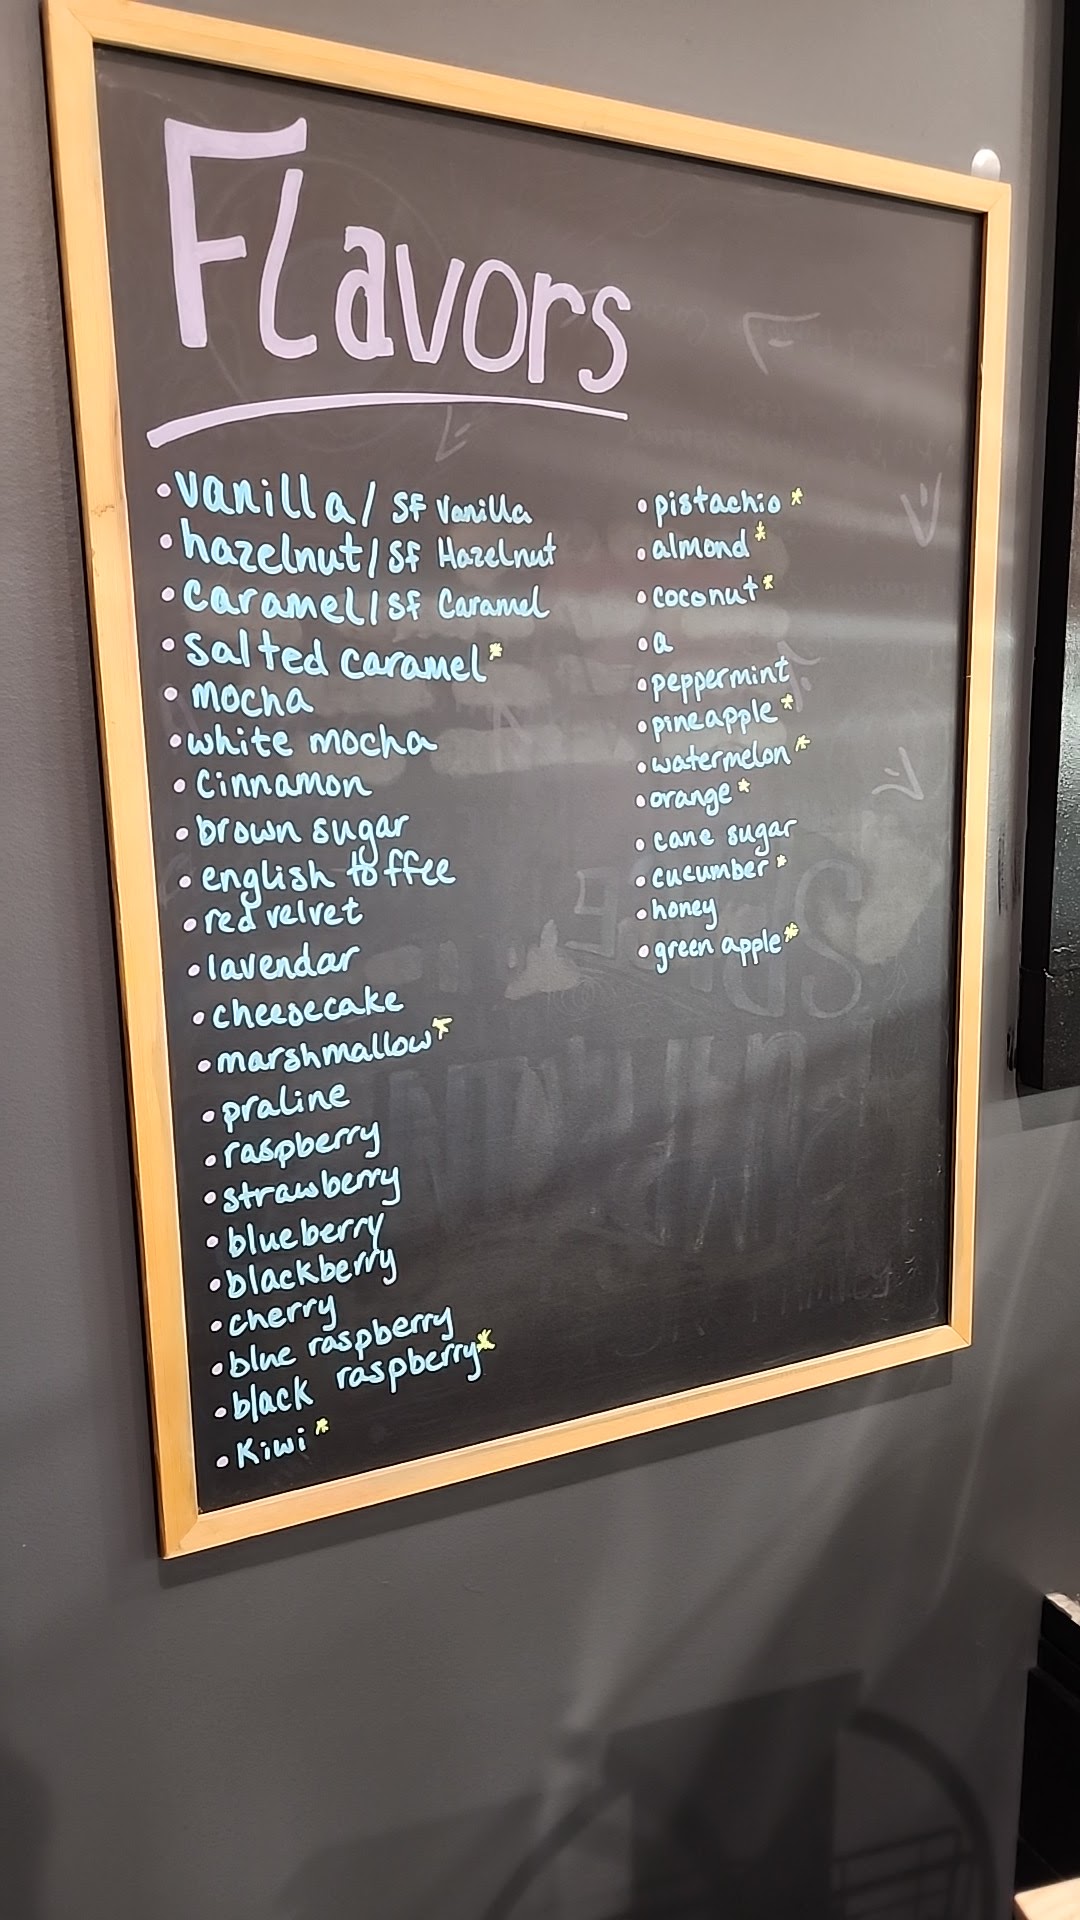 Flavors
• vanilla / SF Vanilla
• hazelnut / SF Hazelnut
• Caramel / SF Caramel
• Salted Caramel *
• mocha
• white mocha
• Cinnamon
• brown sugar
• english toffee
• red velvet
• lavendar
• cheesecake
• marshmallow *
• praline
• raspberry
• strawberry
• blueberry
• blackberry
• cherry
• blue raspberry
• black raspberry *
• Kiwi *
• pistachio *
• almond *
• coconut *
• a
• peppermint
• pineapple *
• watermelon *
• orange *
• cane sugar
• cucumber *
• honey
• green apple *